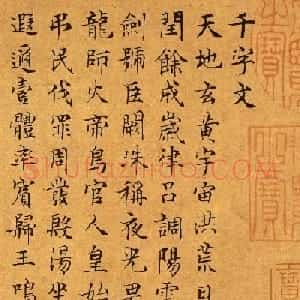 千字文
天地玄黃宇宙洪荒日
閏餘成歲律呂調陽雲
劍號巨闕珠稱夜光果
龍師火帝鳥官人皇始
弔民伐罪周發殷湯坐
遐邇壹體率賓歸王鳴